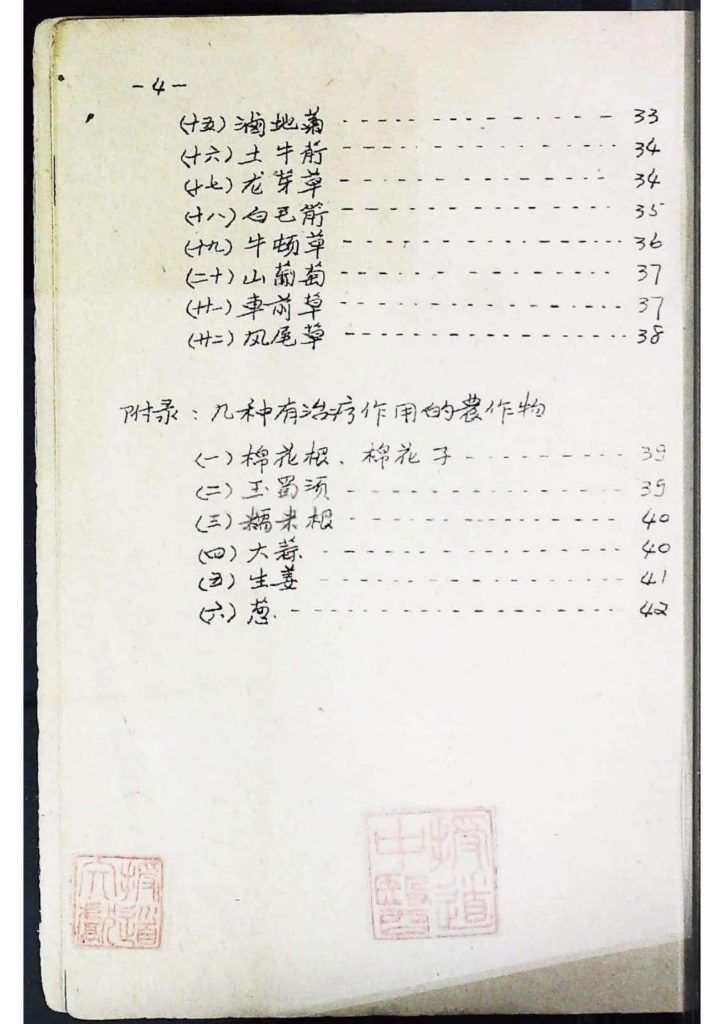 -4-
(十五) 滷地菊 - - - - - - - - - - - - 33
(十六) 土牛膝 - - - - - - - - - - - - 34
(十七) 龙芽草 - - - - - - - - - - - - 34
(十八) 白毛箭 - - - - - - - - - - - - 35
(十九) 牛顿草 - - - - - - - - - - - - 36
(二十) 山葡萄 - - - - - - - - - - - - 37
(廿一) 車前草 - - - - - - - - - - - - 37
(廿二) 凤尾草 - - - - - - - - - - - - 38
附录：几种有治疗作用的農作物
(一) 棉花根、棉花子 - - - - - - - - 39
(二) 玉蜀须 - - - - - - - - - - - - 39
(三) 糯米根 - - - - - - - - - - - - 40
(四) 大蒜 - - - - - - - - - - - - 40
(五) 生姜 - - - - - - - - - - - - 41
(六) 葱 - - - - - - - - - - - - 42
中醫
道
文獻
道